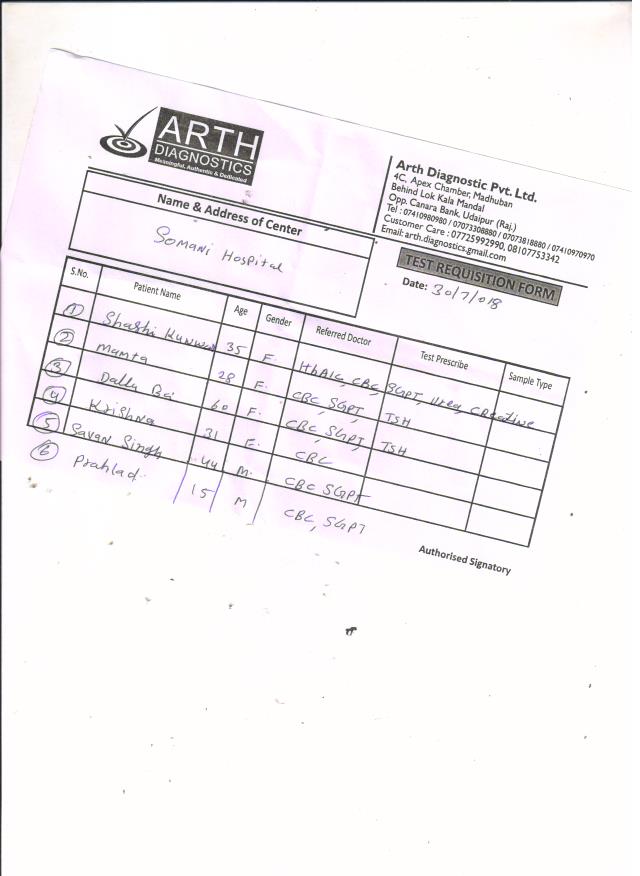 ARTH
DIAGNOSTICS
Meaningful, Authentic & Dedicated
Arth Diagnostic Pvt. Ltd.
4C, Apex Chamber, Madhuban
Behind Lok Kala Mandal
Opp. Canara Bank, Udaipur (Raj.)
Tel : 07410980980 / 07073308880 / 07073818880 / 07410970970
Customer Care : 07725992990, 08107753342
Email: arth.diagnostics.gmail.com
Name & Address of Center
Somani Hospital
TEST REQUISITION FORM
Date: 30/7/018
S.No. Patient Name Age Gender Referred Doctor Test Prescribe Sample Type
1 Shashi Kunwar 35 F. HbA1c, CBC, SGPT, Urea, Creatine
2 Mamta 28 F. CBC, SGPT, TSH
3 Dallu Bai 60 F. CBC, SGPT, TSH
4 Krishna 31 F. CBC
5 Savan Singh 44 M. CBC SGPT
6 Prahlad. 15 M CBC, SGPT
Authorised Signatory